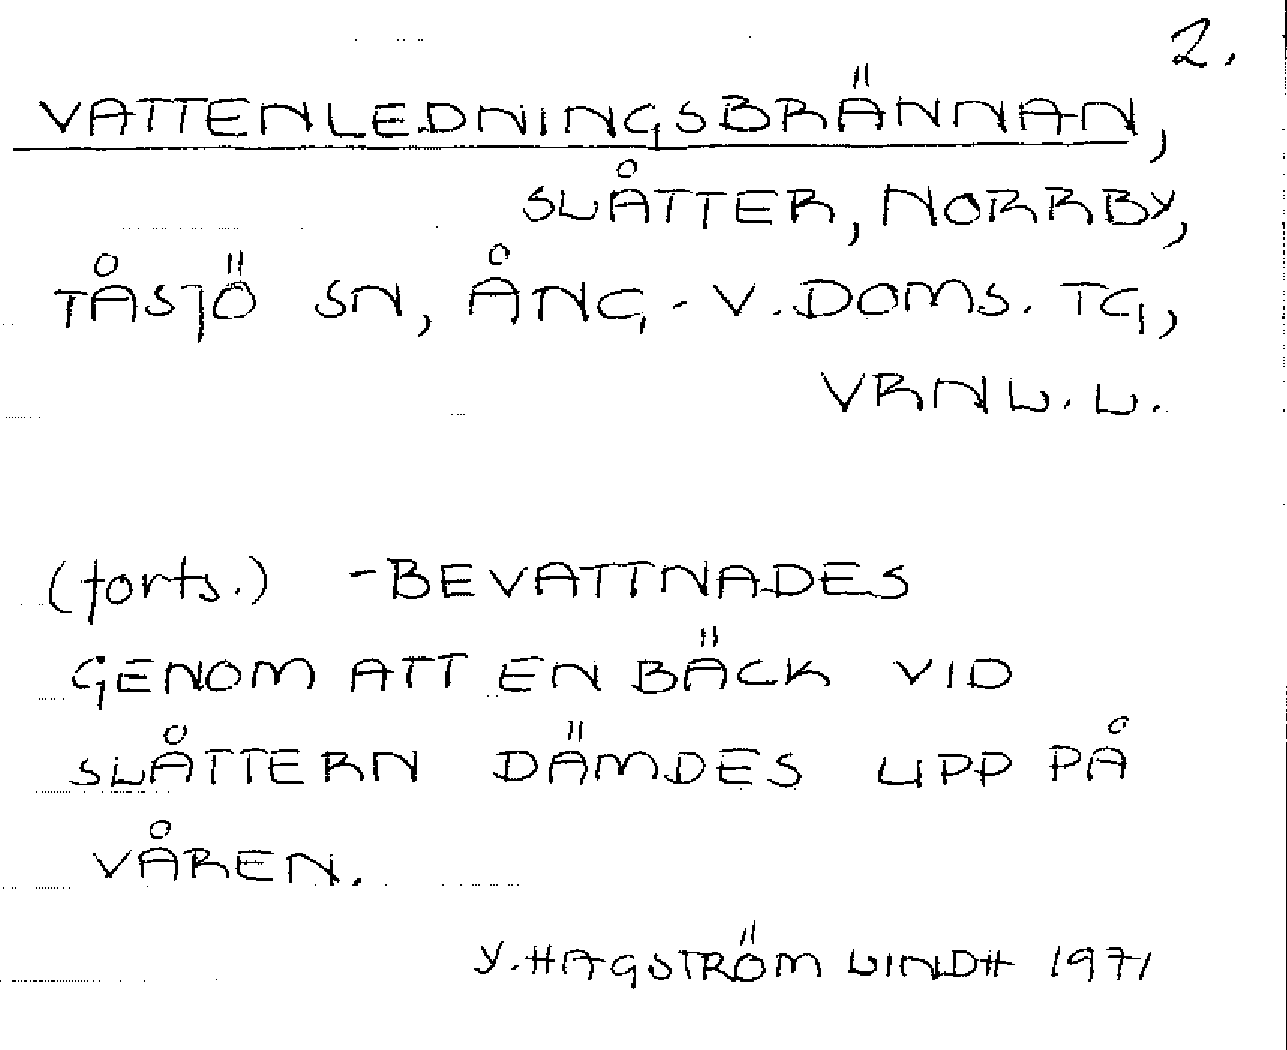 2.
VATTENLEDNINGSBRÄNNAN,
SLÅTTER, NORRBY,
TÅSJÖ SN, ÅNG.-V. DOMS. TG,
VRNL. L.
(forts.) -BEVATTNADES
GENOM ATT EN BÄCK VID
SLÅTTERN DÄMDES UPP PÅ
VÅREN.
Y. HAGSTRÖM LINDH 1971